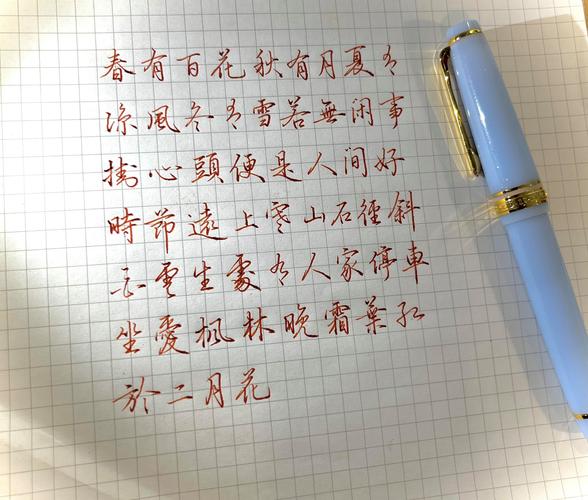 春有百花秋有月夏有
涼風冬有雪若無闲事
掛心頭便是人间好
時節遠上寒山石徑斜
白雲生處有人家停車
坐愛楓林晚霜葉紅
於二月花